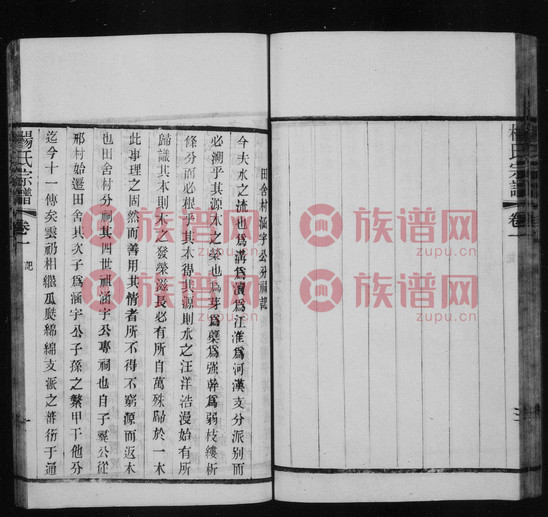 楊氏宗譜
卷一
田舍村涵字公分祠記
今夫水之流也爲溝爲瀆爲江淮爲河漢支分派别而
必溯乎其源木之榮也爲芽爲蘖爲强幹爲弱枝縷析
條分而必根乎其本得其源則水之汪洋浩漫始有所
歸識其本則木之發榮滋長必有所自萬殊歸於一本
此事理之固然而善用其情者所不得不窮源而返本
也田舍村分祠其四世祖涵字公專祠也自子羣公從
邢村始遷田舍其次子爲涵字公子孫之繁甲于他分
迄今十一傳矣雲礽相繼瓜瓞綿綿支派之蕃衍于通
楊氏宗譜
卷一
記
一
族谱网
zupu.cn
族谱网
zupu.cn
族谱网
zupu.cn
族谱网
zupu.cn